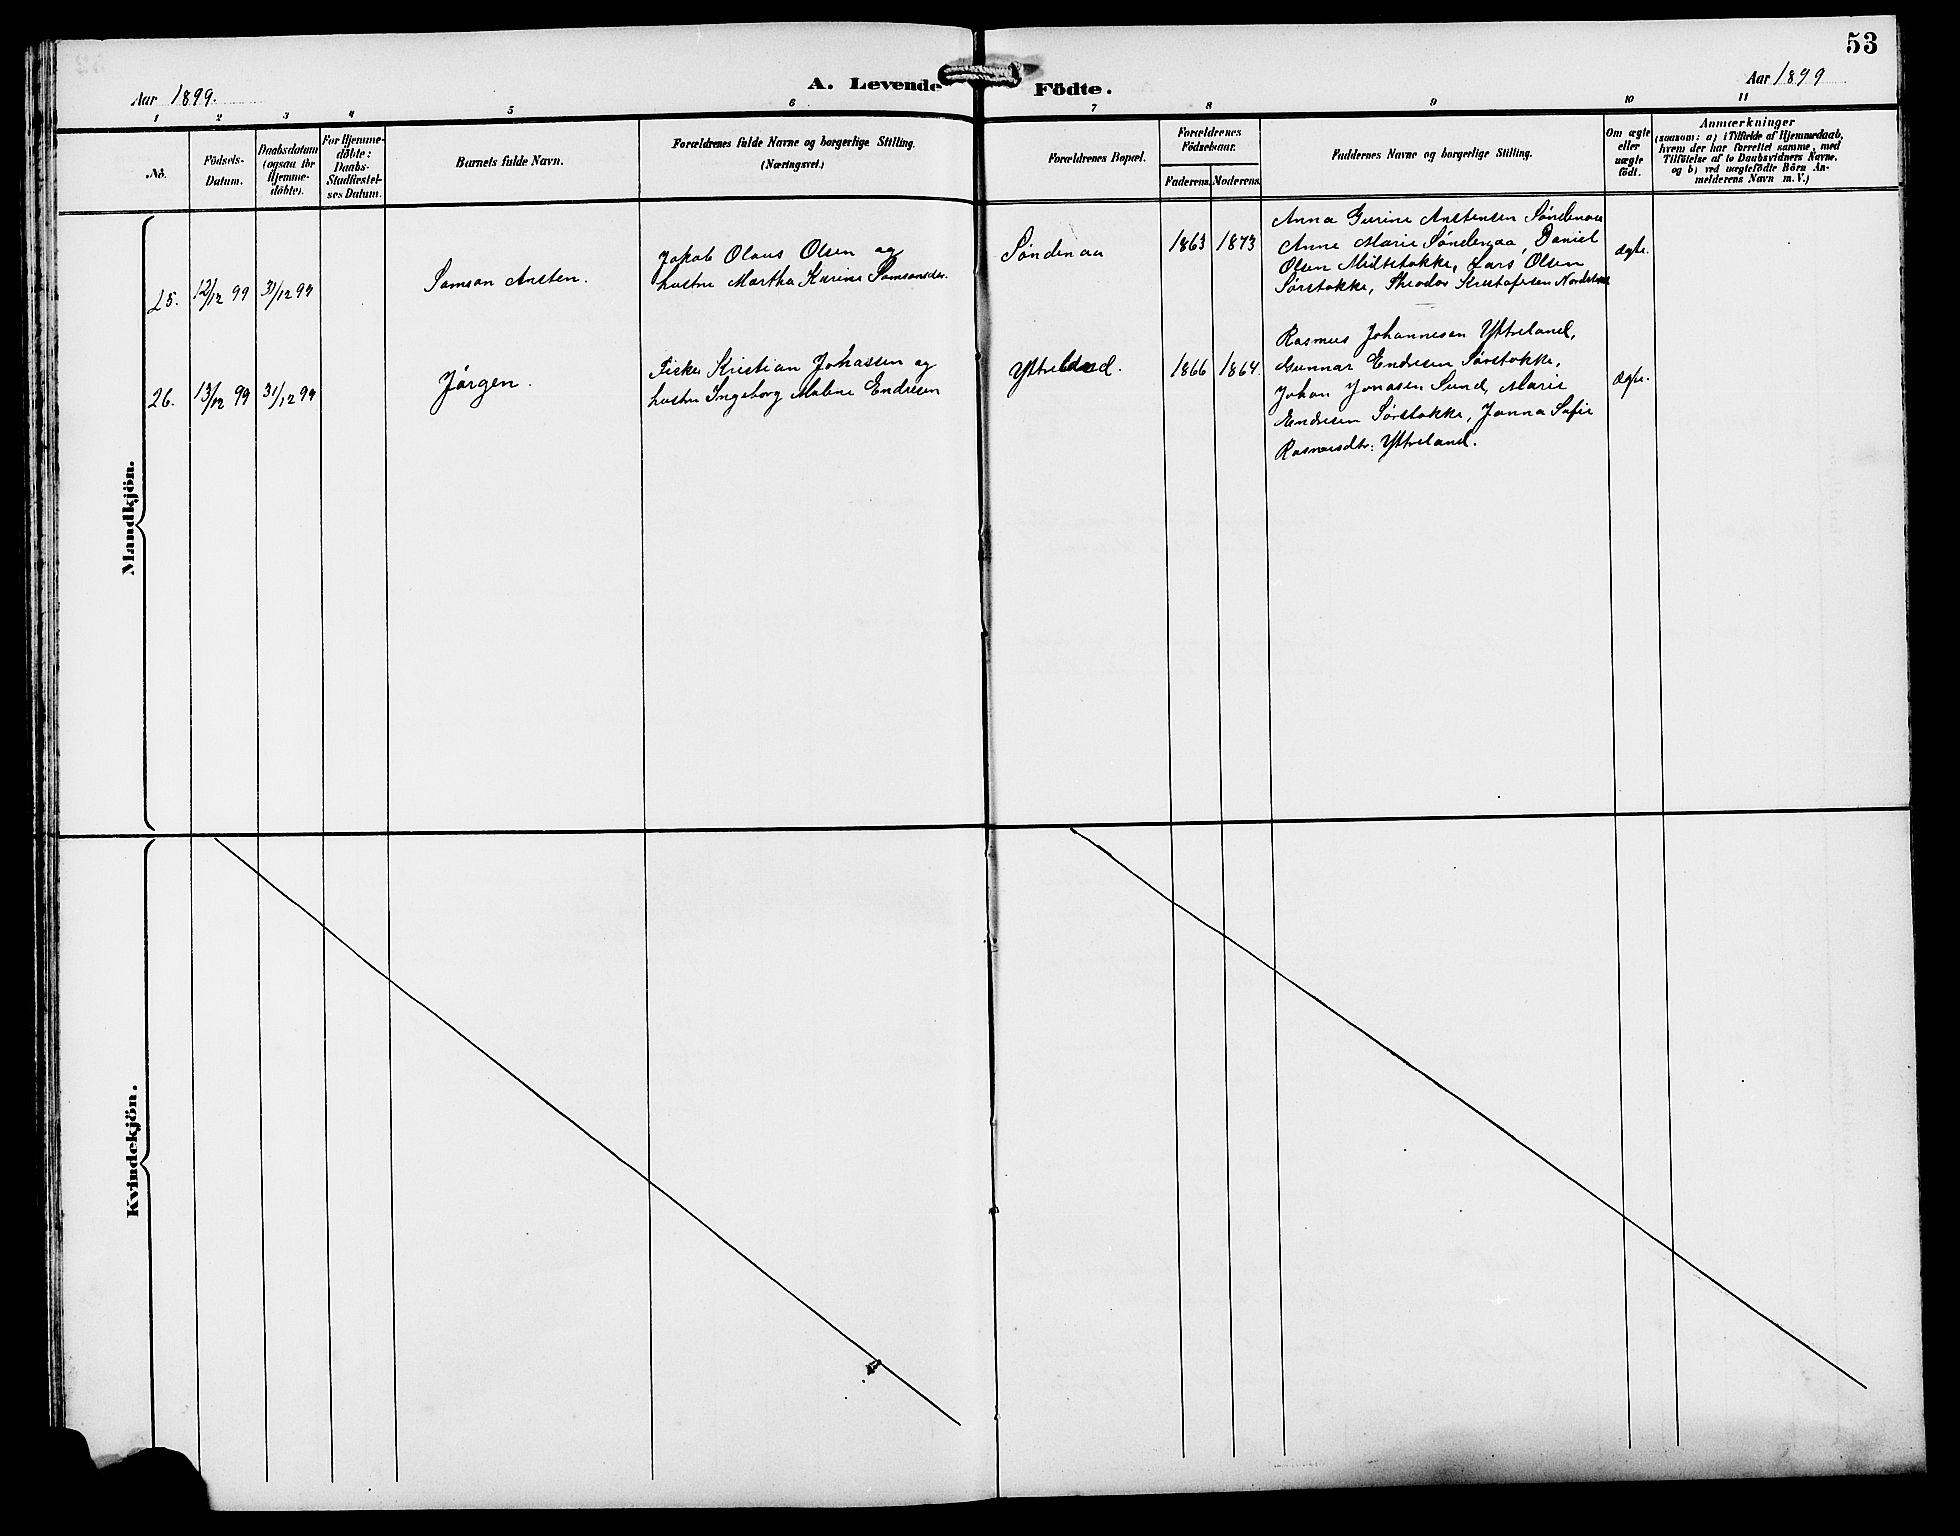 53
Aar 1899.
A. Levende Födte.
Aar 1899
1 2 3 4 5 6 7 8 9 10 11
No.
Födsels-
Datum.
Daabsdatum
(ogsaa for
Hjemme-
döbte).
For Hjemme-
döbte:
Daabs-
Stadfæstel-
ses Datum.
Barnets fulde Navn.
Forældrenes fulde Navne og borgerlige Stilling.
(Næringsvei.)
Forældrenes Bopæl.
Forældrenes
Födselsaar.
Faderens. Moderens.
Faddernes Navne og borgerlige Stilling.
Om ægte
eller
uægte
födt.
Anmærkninger
(saasom: a) i Tilfælde af Hjemmedaab,
hvem der har forrettet samme, med
Tilföielse af to Daabsvidners Navne,
og b) ved uægtefödte Börn An-
melderens Navn m. V.)
Mandkjön.
25. 12/12 99 31/12 99
Samson Ansten.
Jakob Olaus Olsen og
hustru Martha Karine Samsonsdtr.
Söndenaa
1863 1873
Anna Gurine Anstensen Söndenaa
Anne Marie Söndenaa, Daniel
Olsen Midtstokke, Lars Olsen
Sörstokke, Theodor Kristofersen
ægte.
26. 13/12 99 31/12 99
Jörgen.
Fisker Kristian Johassen og
hustru Ingeborg Malene Endresen
Yttreland.
1866 1864.
Rasmus Johannesen Yttreland,
Gunnar Endresen Sørstokke,
Johan Jonasen Sund, Marie
Endresen Sørstokke, Janna Sofie
Rasmusdtr. Yttreland.
ægte.
Kvindekjön.